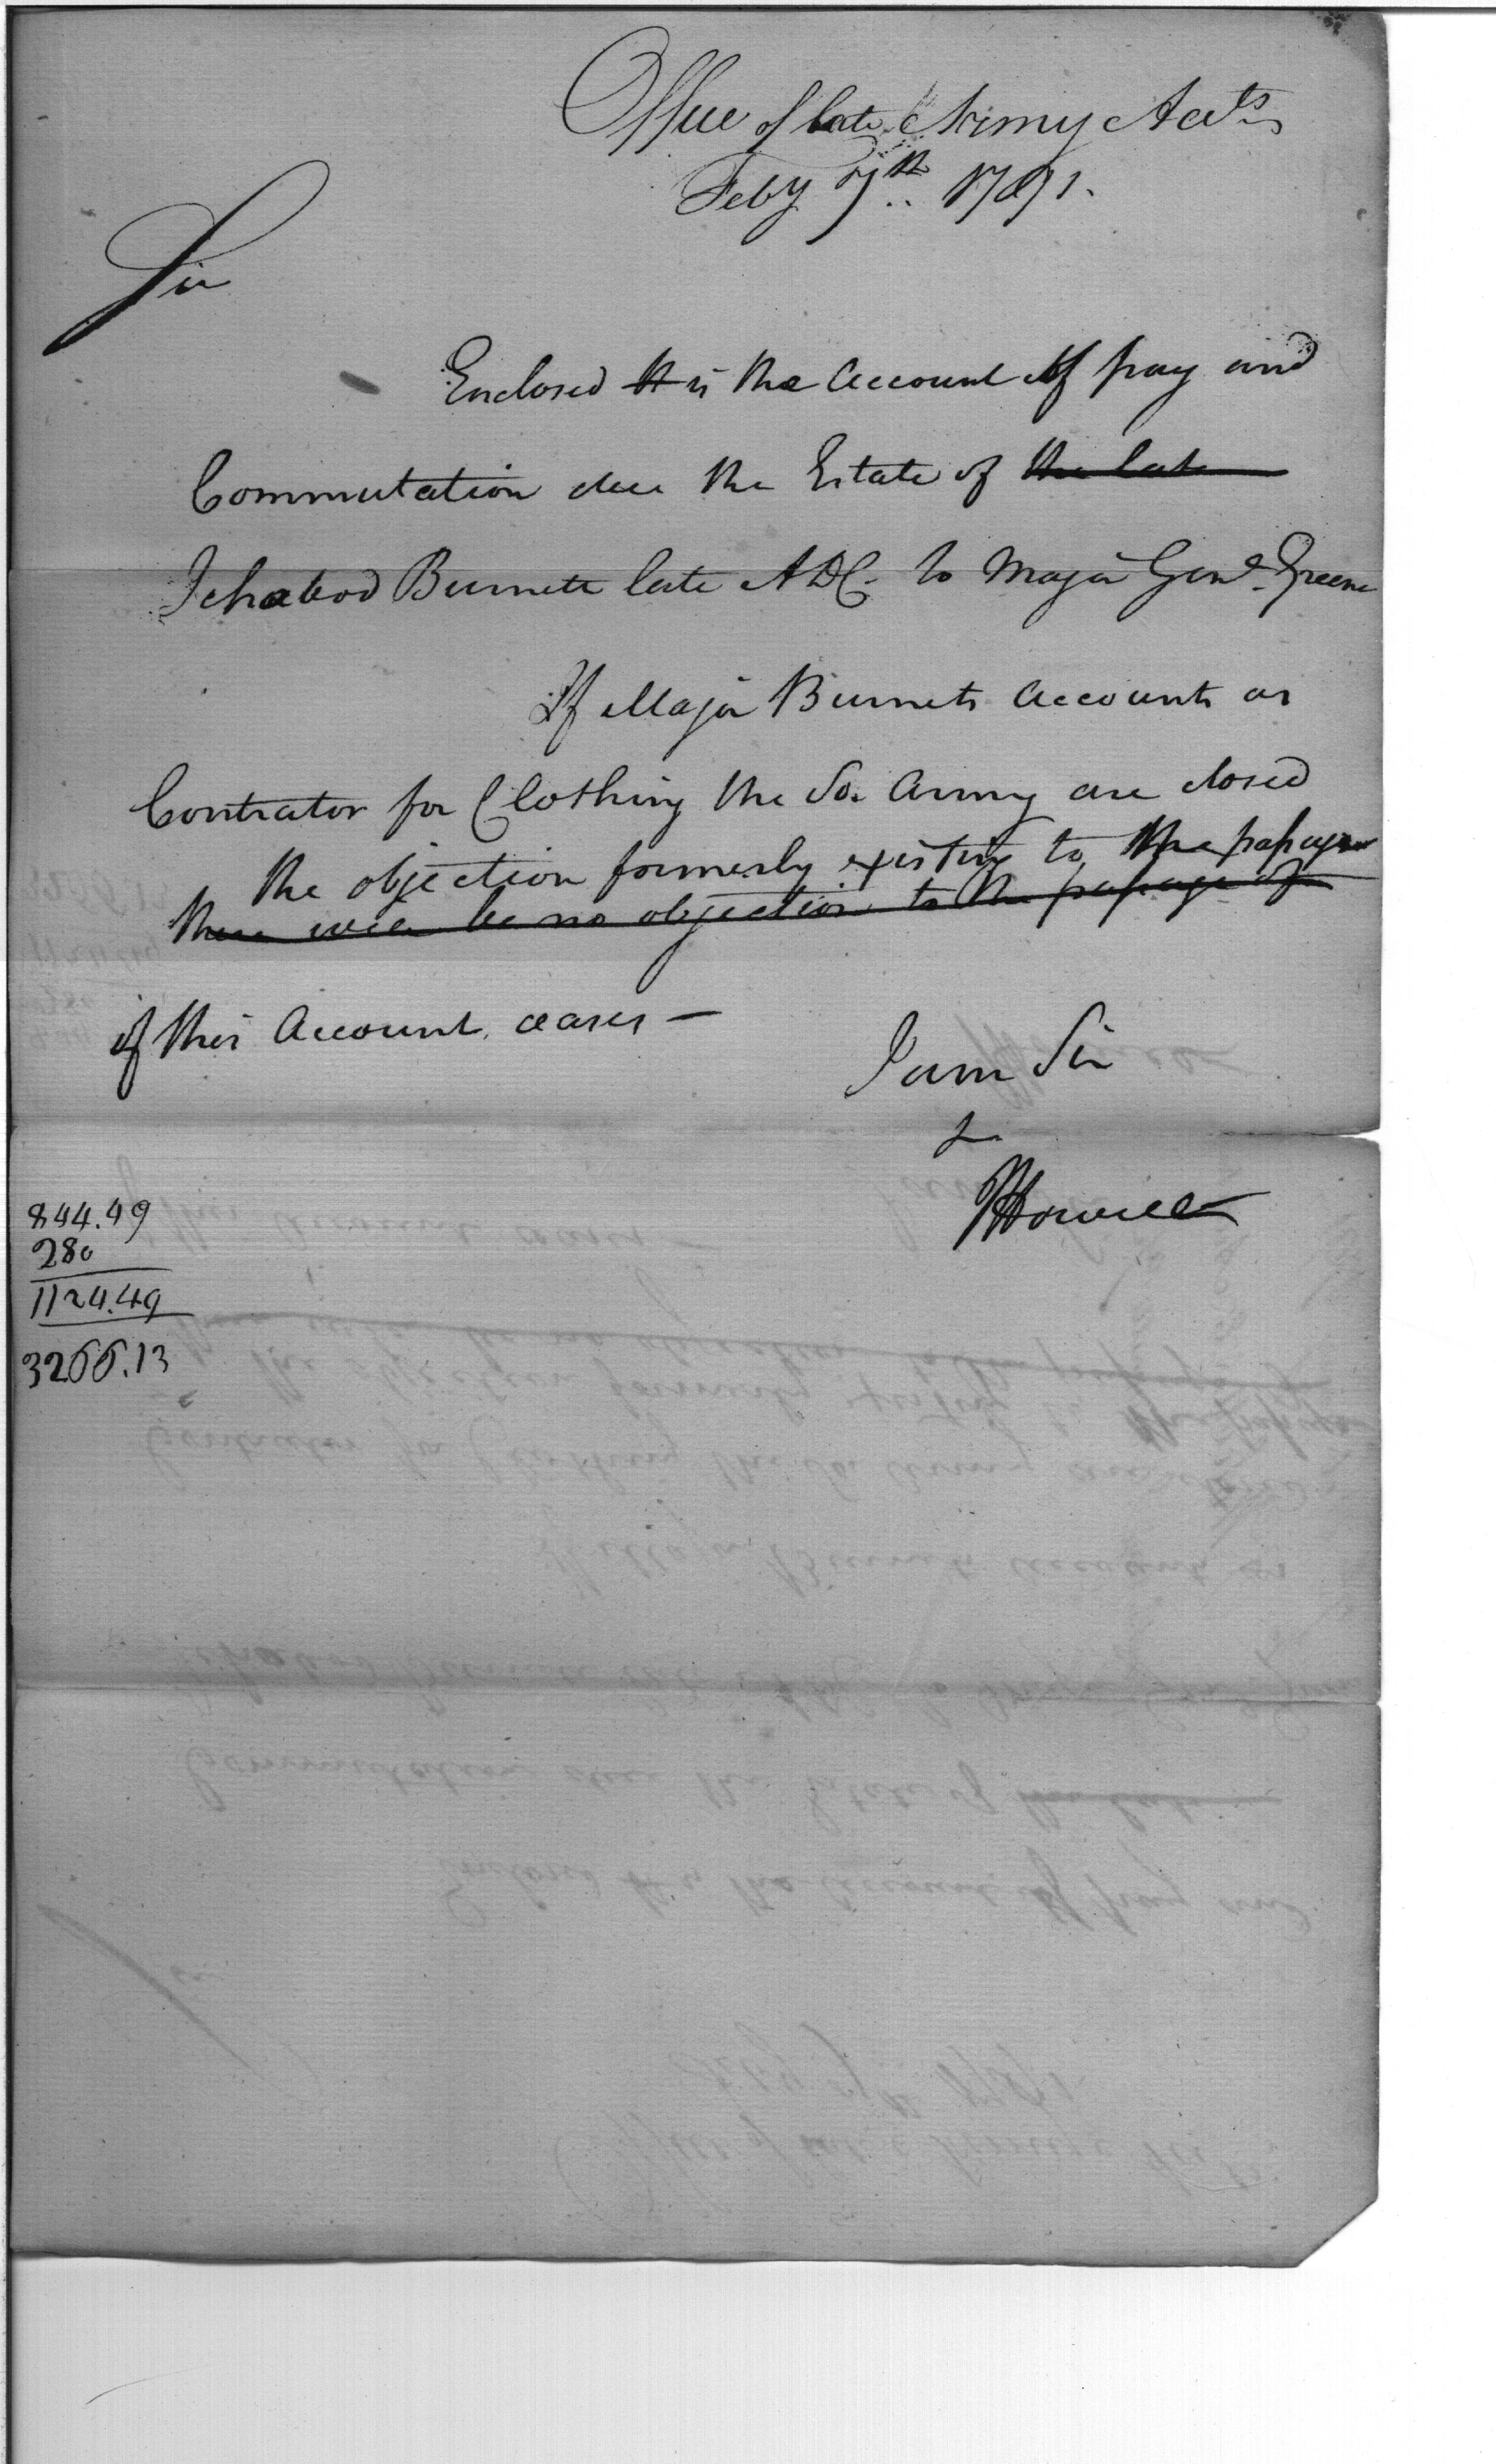 Office of late Army Accts
Feby 7th 1791.
Sir
Enclosed is the Account of pay and
Commutation due the Estate of the late
Ichabod Burnett late ADC. to Major Genl. Greene
If Major Burnets Accounts as
Contrator for Clothing the So. Army are closed
the objection formerly existing to the passage
there will be no objection to the passage of
of this Account ceases —
I am Sir
&
JHowell
844.49
280
1124.49
3266.13